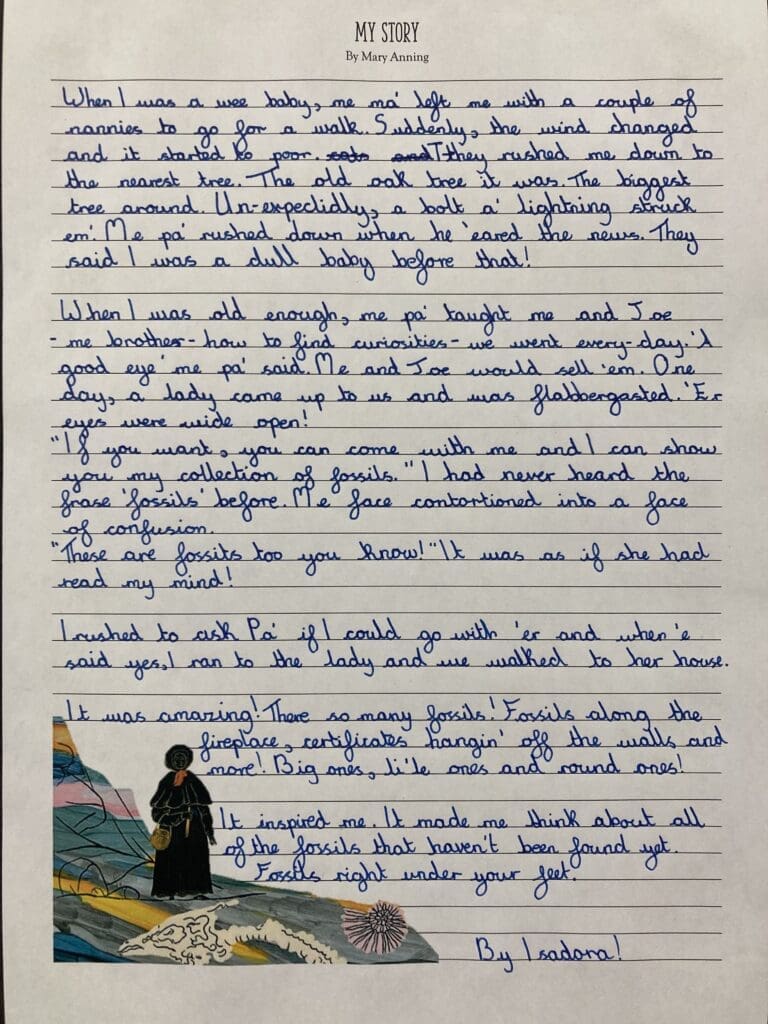 MY STORY
By Mary Anning
When I was a wee baby, me ma' left me with a couple of
nannies to go for a walk. Suddenly, the wind changed
and it started to poor. cats and They rushed me down to
the nearest tree. The old oak tree it was. The biggest
tree around. Un-expeclidly, a bolt a' lightning struck
em'. Me pa' rushed down when he 'eared the news. They
said I was a dull baby before that!
When I was old enough, me pa' taught me and Joe
- me brother - how to find curiosities - we went every-day. 'A
good eye' me pa' said. Me and Joe would sell 'em. One
day, a lady came up to us and was flabbergasted. 'Er
eyes were wide open!
"If you want, you can come with me and I can show
you my collection of fossils." I had never heard the
frase 'fossils' before. Me face contortioned into a face
of confusion.
"These are fossils too you know!" It was as if she had
read my mind!
I rushed to ask Pa' if I could go with 'er and when 'e
said yes, I ran to the lady and we walked to her house.
It was amazing! There so many fossils! Fossils along the
fireplace, certificates hangin' off the walls and
more! Big ones, li'le ones and round ones!
It inspired me. It made me think about all
of the fossils that haven't been found yet.
Fossils right under your feet.
By Isadora!